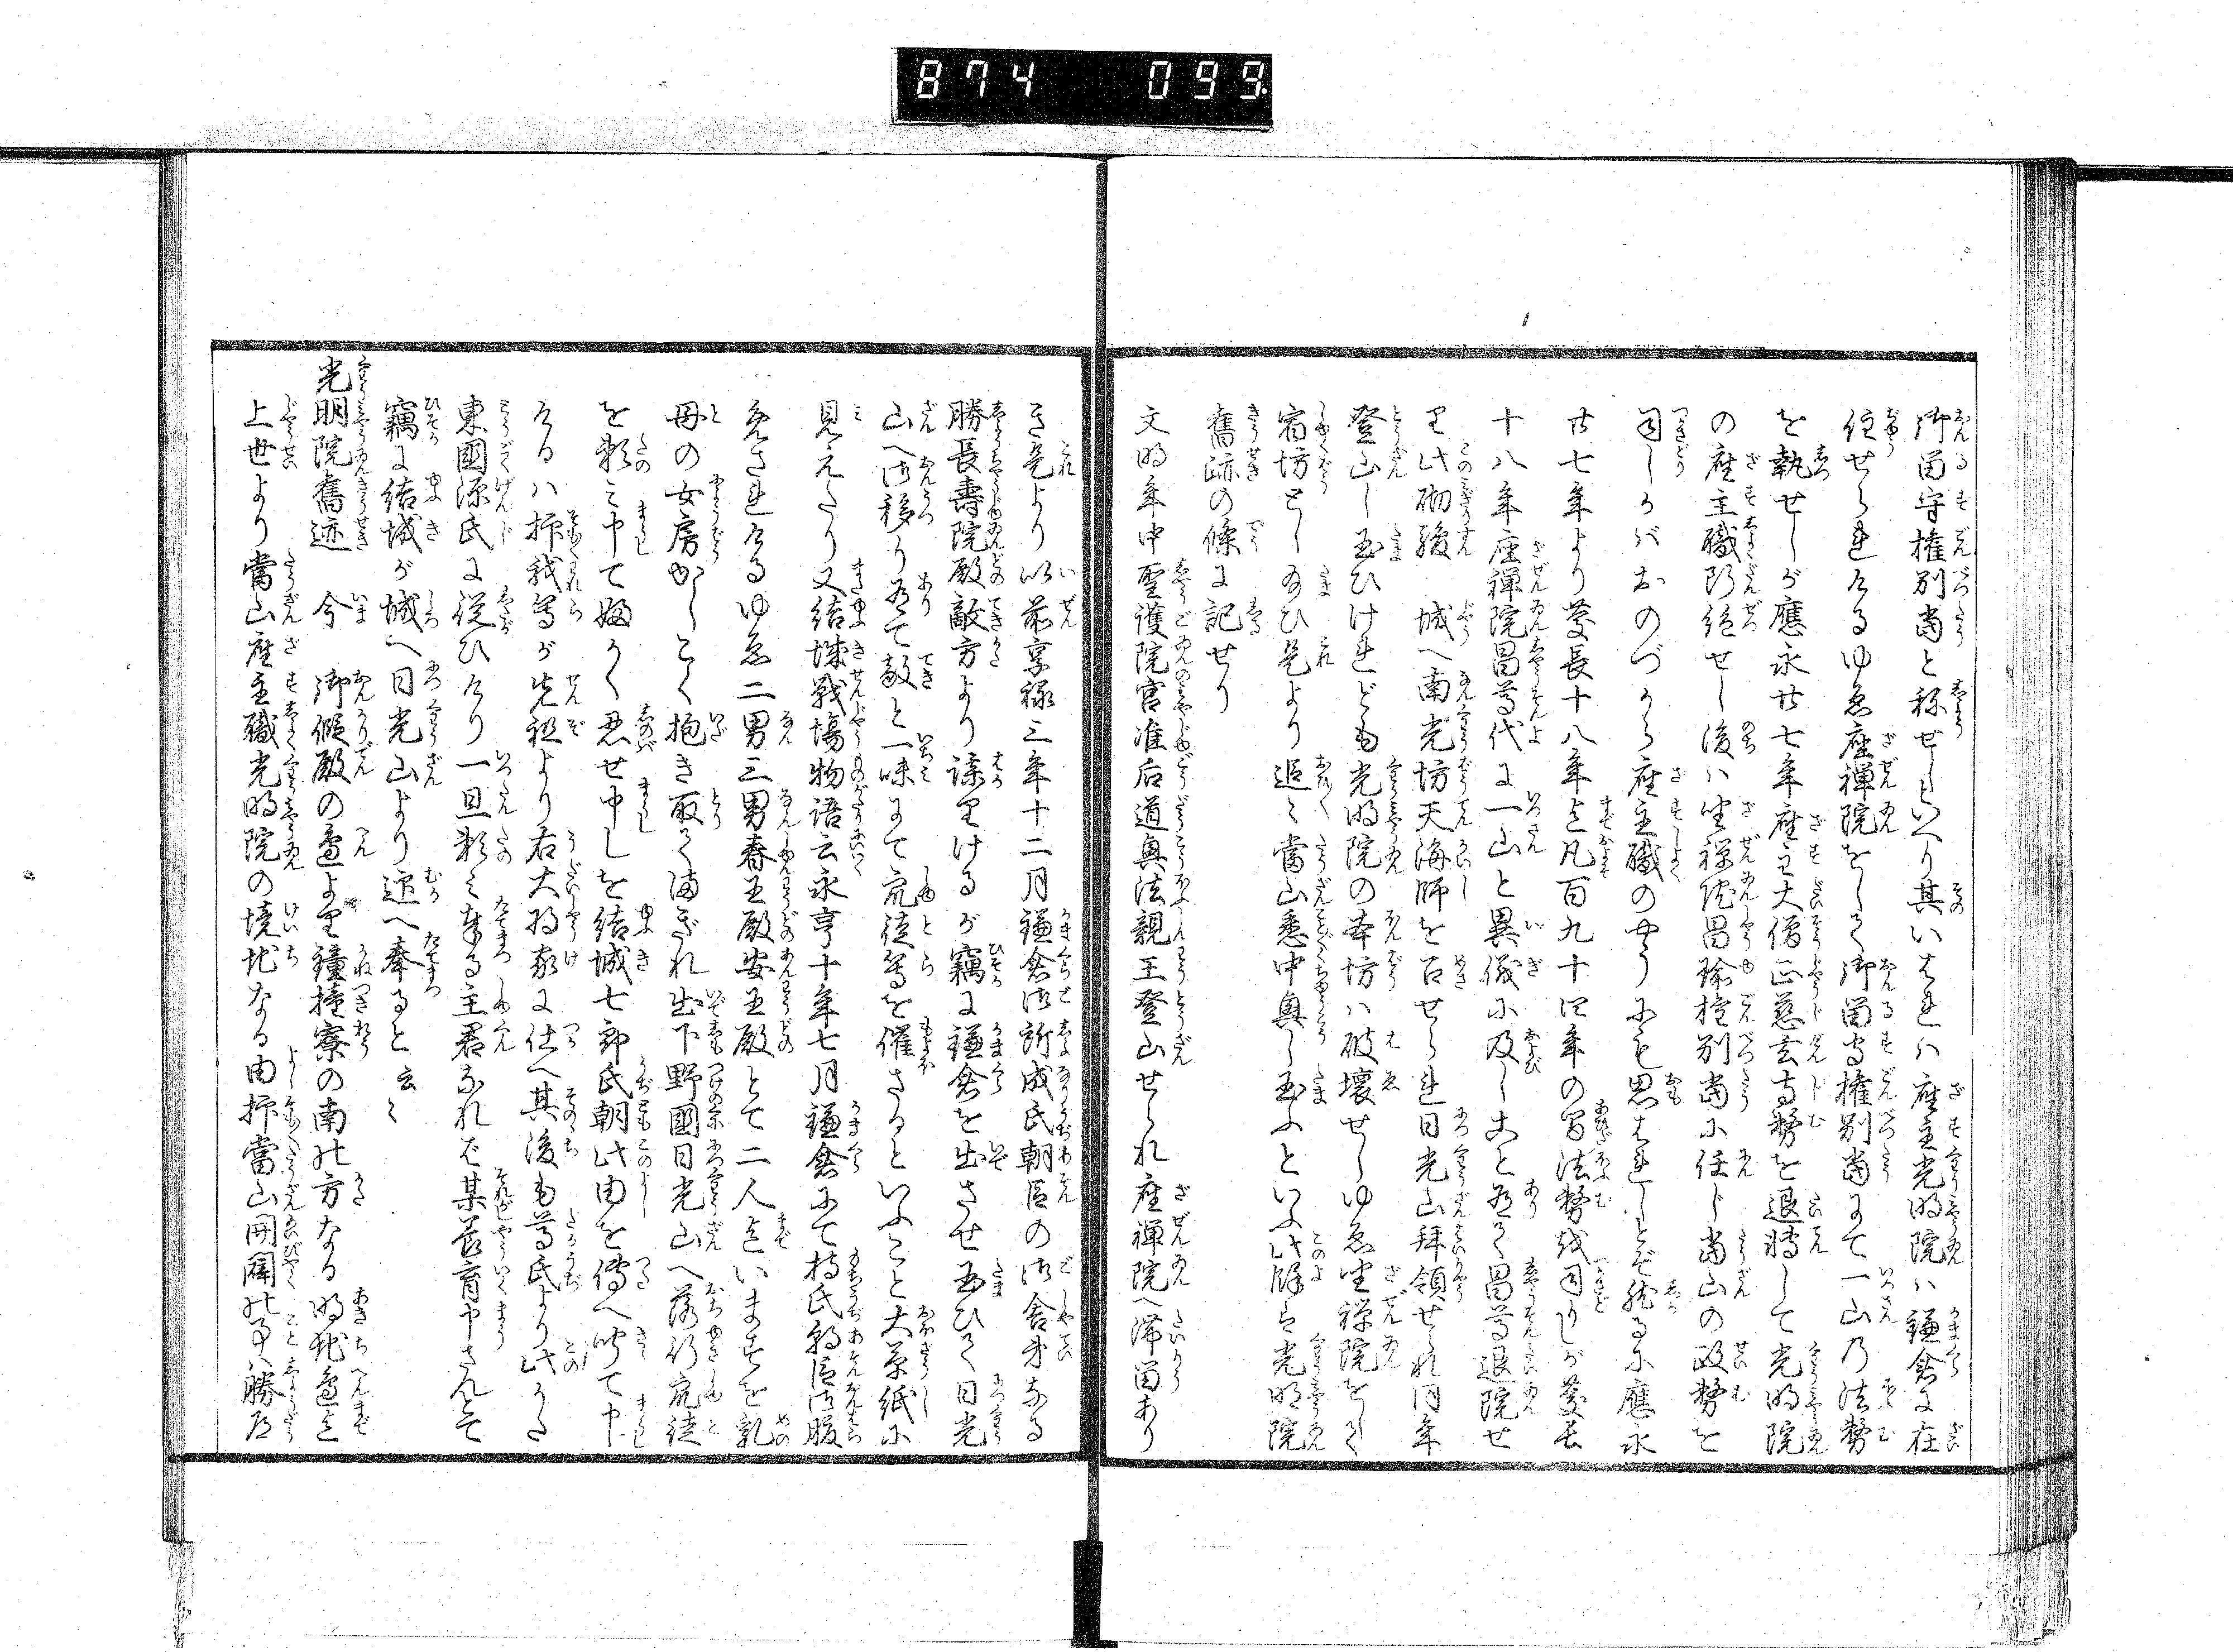 874 099
御留守權別當と称ぜしといへり其いはれハ座主光明院ハ鎌倉に在
住せられけるゆゑ座禪院をして御留守權別當にて一山乃法務
を執せしが應永廿七年座主大僧正慈玄寺務を退轉して光明院
の座主職断絶せし後ハ坐禅院昌瑜權別當に任じ當山の政務を
司しかバおのづから座主職のやうにも思はれしとぞ然るに應永
廿七年より慶長十八年迄凡百九十四年の間法務を司りしが慶長
十八年座禪院昌尊代に一山と異儀に及しこと有て昌尊退院せ
り此砌駿 城へ南光坊天海師を召せられ日光山拜領せられ同年
登山し玉ひけれども光明院の本坊ハ破壞せしゆゑ坐禅院をして
宿坊とし給ひ是より追々當山悉中興し玉ふといふ此餘も光明院
舊跡の條に記せり
文明年中聖護院宮准后道興法親王登山せられ座禪院へ滞留あり
き是より以前享禄三年十二月鎌倉御所成氏朝臣の御舎弟なる
勝長壽院殿敵方より謀りけるが竊に鎌倉を出させ玉ひて日光
山へ御移り有て敵と一味にて宗徒等を催さるといふこと大草紙に
見えたり又結城戰場物語云永亨十年七月鎌倉にて持氏朝臣御腹
めされけるゆゑ二男三男春王殿安王殿とて二人迄いますを乳
母の女房かしこく抱き取てまぎれ出下野國日光山へ落行宗徒
を頼ミ申て姫かく忍せ申しを結城七郎氏朝此由を傳へ聞て申
けるハ抑我等が先祖より右大將家に仕へ其後も尊氏より此かた
東國源氏に従ひけり一旦頼ミ奉る主君なれば某養育申さんとて
竊に結城が城へ日光山より迎へ奉ると云々
光明院舊迹 今 御假殿の邊より鐘撞寮の南の方なる明地邊迄
上世より當山座主職光明院の境地なる由抑當山開闢の事ハ勝道